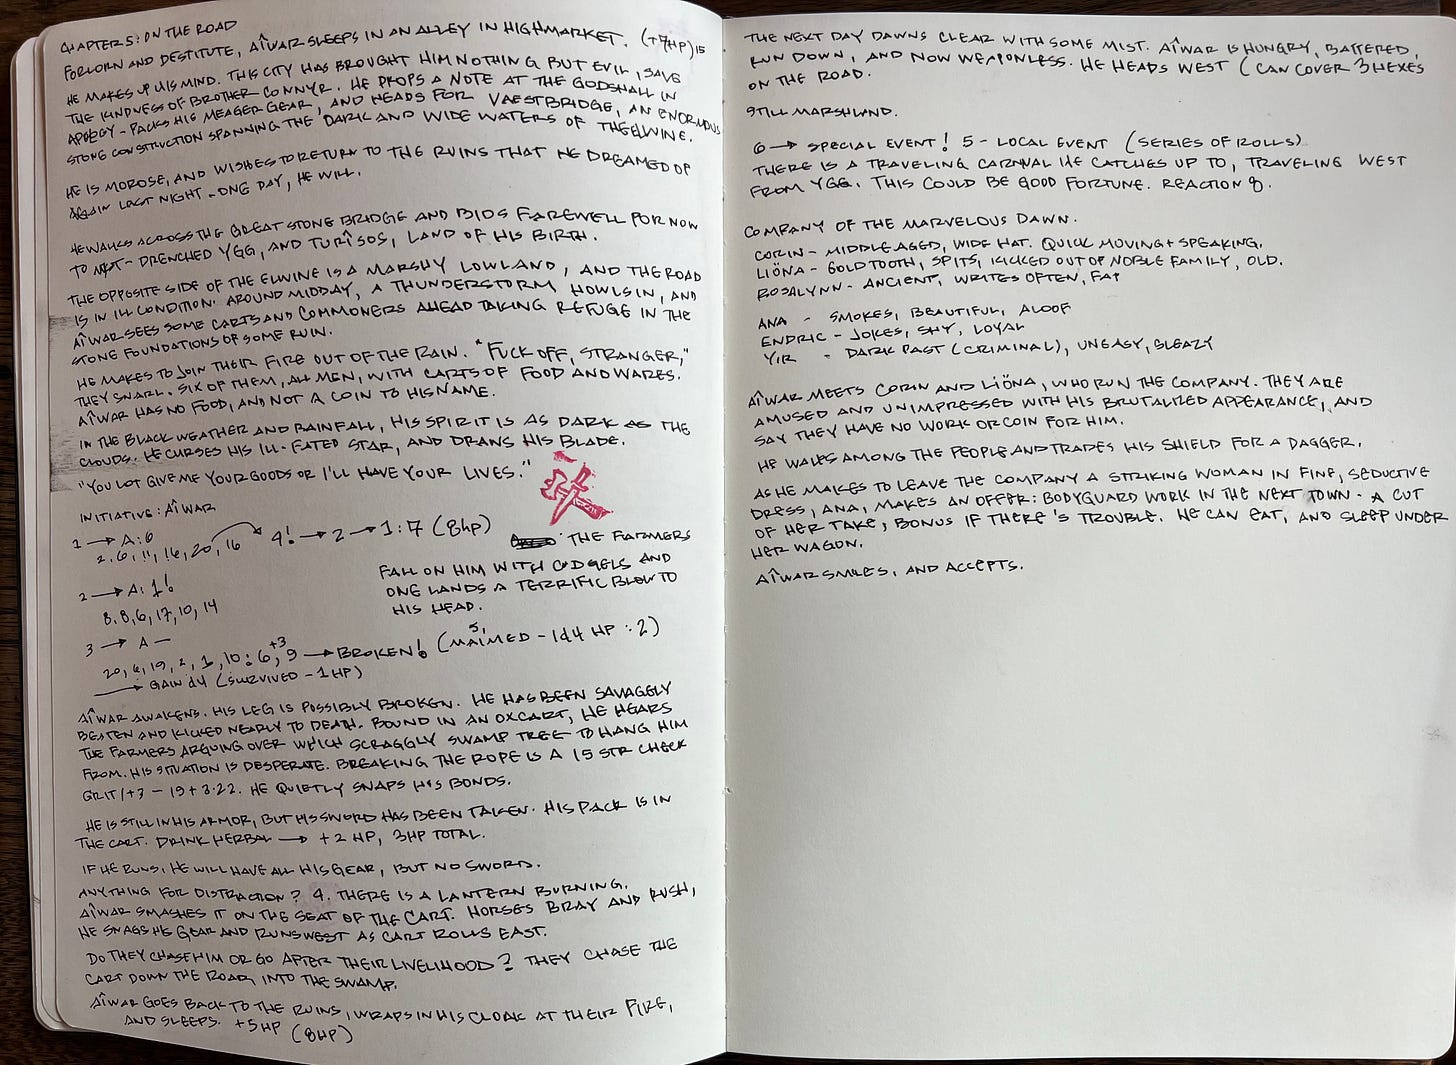 CHAPTER 5: ON THE ROAD
FORLORN AND DESTITUTE, AÎWAR SLEEPS IN AN ALLEY IN HIGHMARKET. (+7HP) 15
HE MAKES UP HIS MIND. THIS CITY HAS BROUGHT HIM NOTHING BUT EVIL, SAVE
THE KINDNESS OF BROTHER CONNYR. HE DROPS A NOTE AT THE GODSHALL IN
APOLOGY - PACKS HIS MEAGER GEAR, AND HEADS FOR VAESTBRIDGE, AN ENORMOUS
STONE CONSTRUCTION SPANNING THE DARK AND WIDE WATERS OF THE ELWINE.
HE IS MOROSE, AND WISHES TO RETURN TO THE RUINS THAT HE DREAMED OF
AGAIN LAST NIGHT - ONE DAY, HE WILL.
HE WALKS ACROSS THE GREAT STONE BRIDGE AND BIDS FAREWELL FOR NOW
TO - DRENCHED YGG, AND TURÎSOS, LAND OF HIS BIRTH.
THE OPPOSITE SIDE OF THE ELWINE IS A MARSHY LOWLAND, AND THE ROAD
IS IN ILL CONDITION. AROUND MIDDAY, A THUNDERSTORM HOWLS IN, AND
AÎWAR SEES SOME CARTS AND COMMONERS AHEAD TAKING REFUGE IN THE
STONE FOUNDATIONS OF SOME RUIN.
HE MAKES TO JOIN THEIR FIRE OUT OF THE RAIN. "FUCK OFF, STRANGER,"
THEY SNARL. SIX OF THEM, ALL MEN, WITH CARTS OF FOOD AND WARES.
AÎWAR HAS NO FOOD, AND NOT A COIN TO HIS NAME.
IN THE BLACK WEATHER AND RAINFALL, HIS SPIRIT IS AS DARK AS THE
CLOUDS. HE CURSES HIS ILL-FATED STAR, AND DRAWS HIS BLADE.
"YOU LOT GIVE ME YOUR GOODS OR I'LL HAVE YOUR LIVES."
INITIATIVE: AÎWAR
1 → A: 6
2, 6, 11, 16, 20, 16 → 4! → 2 → 1: 7 (8HP)
THE FARMERS
FALL ON HIM WITH CUDGELS AND
ONE LANDS A TERRIFIC BLOW TO
HIS HEAD.
2 → A: 1!
8, 8, 6, 17, 10, 14
3 → A —
20, 6, 19, 2, 1, 10: 6, +3 9 → BROKEN! (5, MAIMED - 1d4 HP: 2)
→ GAIN d4 (SURVIVED - 1HP)
AÎWAR AWAKENS. HIS LEG IS POSSIBLY BROKEN. HE HAS BEEN SAVAGELY
BEATEN AND KICKED NEARLY TO DEATH. BOUND IN AN OXCART, HE HEARS
THE FARMERS ARGUING OVER WHICH SCRAGGLY SWAMP TREE TO HANG HIM
FROM. HIS SITUATION IS DESPERATE. BREAKING THE ROPE IS A 15 STR CHECK
GRIT/+3 - 19+3=22. HE QUIETLY SNAPS HIS BONDS.
HE IS STILL IN HIS ARMOR, BUT HIS SWORD HAS BEEN TAKEN. HIS PACK IS IN
THE CART. DRINK HERBAL → +2 HP, 3HP TOTAL.
IF HE RUNS, HE WILL HAVE ALL HIS GEAR, BUT NO SWORD.
ANYTHING FOR DISTRACTION? 4. THERE IS A LANTERN BURNING.
AÎWAR SMASHES IT ON THE SEAT OF THE CART. HORSES BRAY AND RUSH,
HE SNAGS HIS GEAR AND RUNS WEST AS CART ROLLS EAST.
DO THEY CHASE HIM OR GO AFTER THEIR LIVELIHOOD? THEY CHASE THE
CART DOWN THE ROAD, INTO THE SWAMP.
AÎWAR GOES BACK TO THE RUINS, WRAPS IN HIS CLOAK AT THEIR FIRE,
AND SLEEPS. +5HP (8HP)
THE NEXT DAY DAWNS CLEAR WITH SOME MIST. AÎWAR IS HUNGRY, BATTERED,
RUN DOWN, AND NOW WEAPONLESS. HE HEADS WEST (CAN COVER 3 HEXES
ON THE ROAD.
STILL MARSHLAND.
6 → SPECIAL EVENT! 5 - LOCAL EVENT (SERIES OF ROLLS)
THERE IS A TRAVELING CARNIVAL HE CATCHES UP TO, TRAVELING WEST
FROM YGG. THIS COULD BE GOOD FORTUNE. REACTION 8.
COMPANY OF THE MARVELOUS DAWN.
CORIN - MIDDLE AGED, WIDE HAT. QUICK MOVING + SPEAKING.
LIÖNA - GOLD TOOTH, SPITS, KICKED OUT OF NOBLE FAMILY, OLD.
ROSALYNN - ANCIENT, WRITES OFTEN, FAT
ANA - SMOKES, BEAUTIFUL, ALOOF
ENDRIC - JOKES, SHY, LOYAL
YIR - DARK PAST (CRIMINAL), UNEASY, SLEAZY
AÎWAR MEETS CORIN AND LIÖNA, WHO RUN THE COMPANY. THEY ARE
AMUSED AND UNIMPRESSED WITH HIS BRUTALIZED APPEARANCE, AND
SAY THEY HAVE NO WORK OR COIN FOR HIM.
HE WALKS AMONG THE PEOPLE AND TRADES HIS SHIELD FOR A DAGGER.
AS HE MAKES TO LEAVE THE COMPANY A STRIKING WOMAN IN FINE, SEDUCTIVE
DRESS, ANA, MAKES AN OFFER: BODYGUARD WORK IN THE NEXT TOWN. A CUT
OF HER TAKE, BONUS IF THERE'S TROUBLE. HE CAN EAT, AND SLEEP UNDER
HER WAGON.
AÎWAR SMILES, AND ACCEPTS.